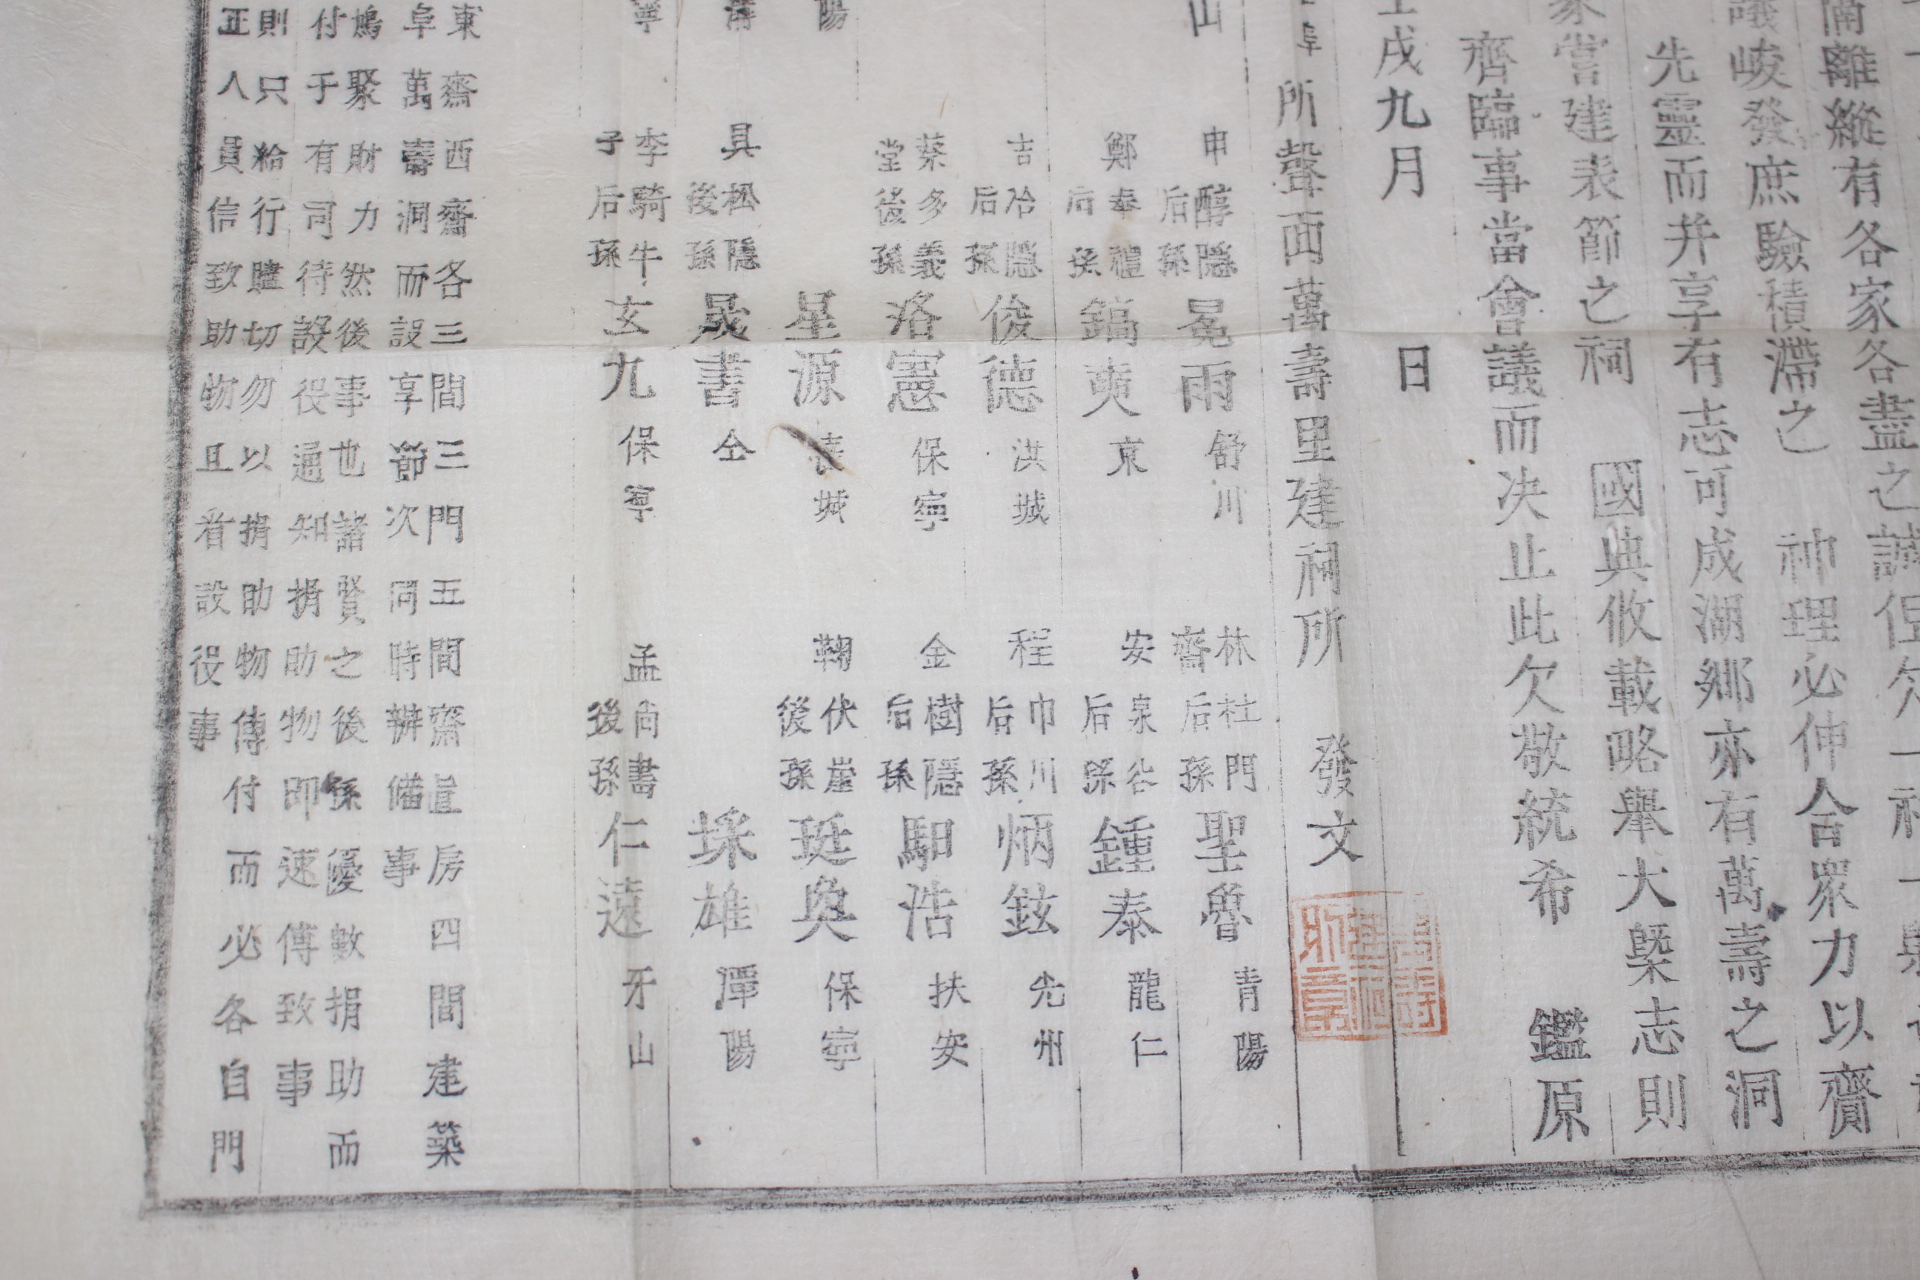 隔離縱有各家各盡之誠但欠一
議峻發庶驗積滯之 神理必伸合眾力以齎
先靈而并享有志可成湖鄉亦有萬壽之洞
家當建表節之祠 國典攸載略舉大槩志則
齊臨事當會議而決止此欠敬統希 鑑原
戌九月 日
阜所聲面萬壽里建祠所 發文
山 申醇隱后孫 冕雨 舒川 林杜門齋后孫 聖魯 青陽
鄭奉禮后孫 鎬奭 京 安泉谷后孫 鍾泰 龍仁
吉冶隱后孫 俊德 洪城 程巾川后孫 炳鉉 光州
蔡多義堂後孫 洛憲 保寧 金樹隱后孫 馹浩 扶安
陽 星源 城 鞠伏崖後孫 珽奐 保寧
具松隱後孫 晟書 仝 埰雄 潭陽
寧 李騎牛子后孫 玄九 保寧 孟尚書後孫 仁遠 牙山
東齋西齋各三間三門五間齋直房四間建築
阜萬壽洞而設享節次同時辦備事
鳩聚財力然後事也諸賢之後孫優數捐助而
付于有司待設役通知捐助物即速傳致事
則只給行贐切勿以捐助物傳付而必各自門
正人員信致助物且看設役事